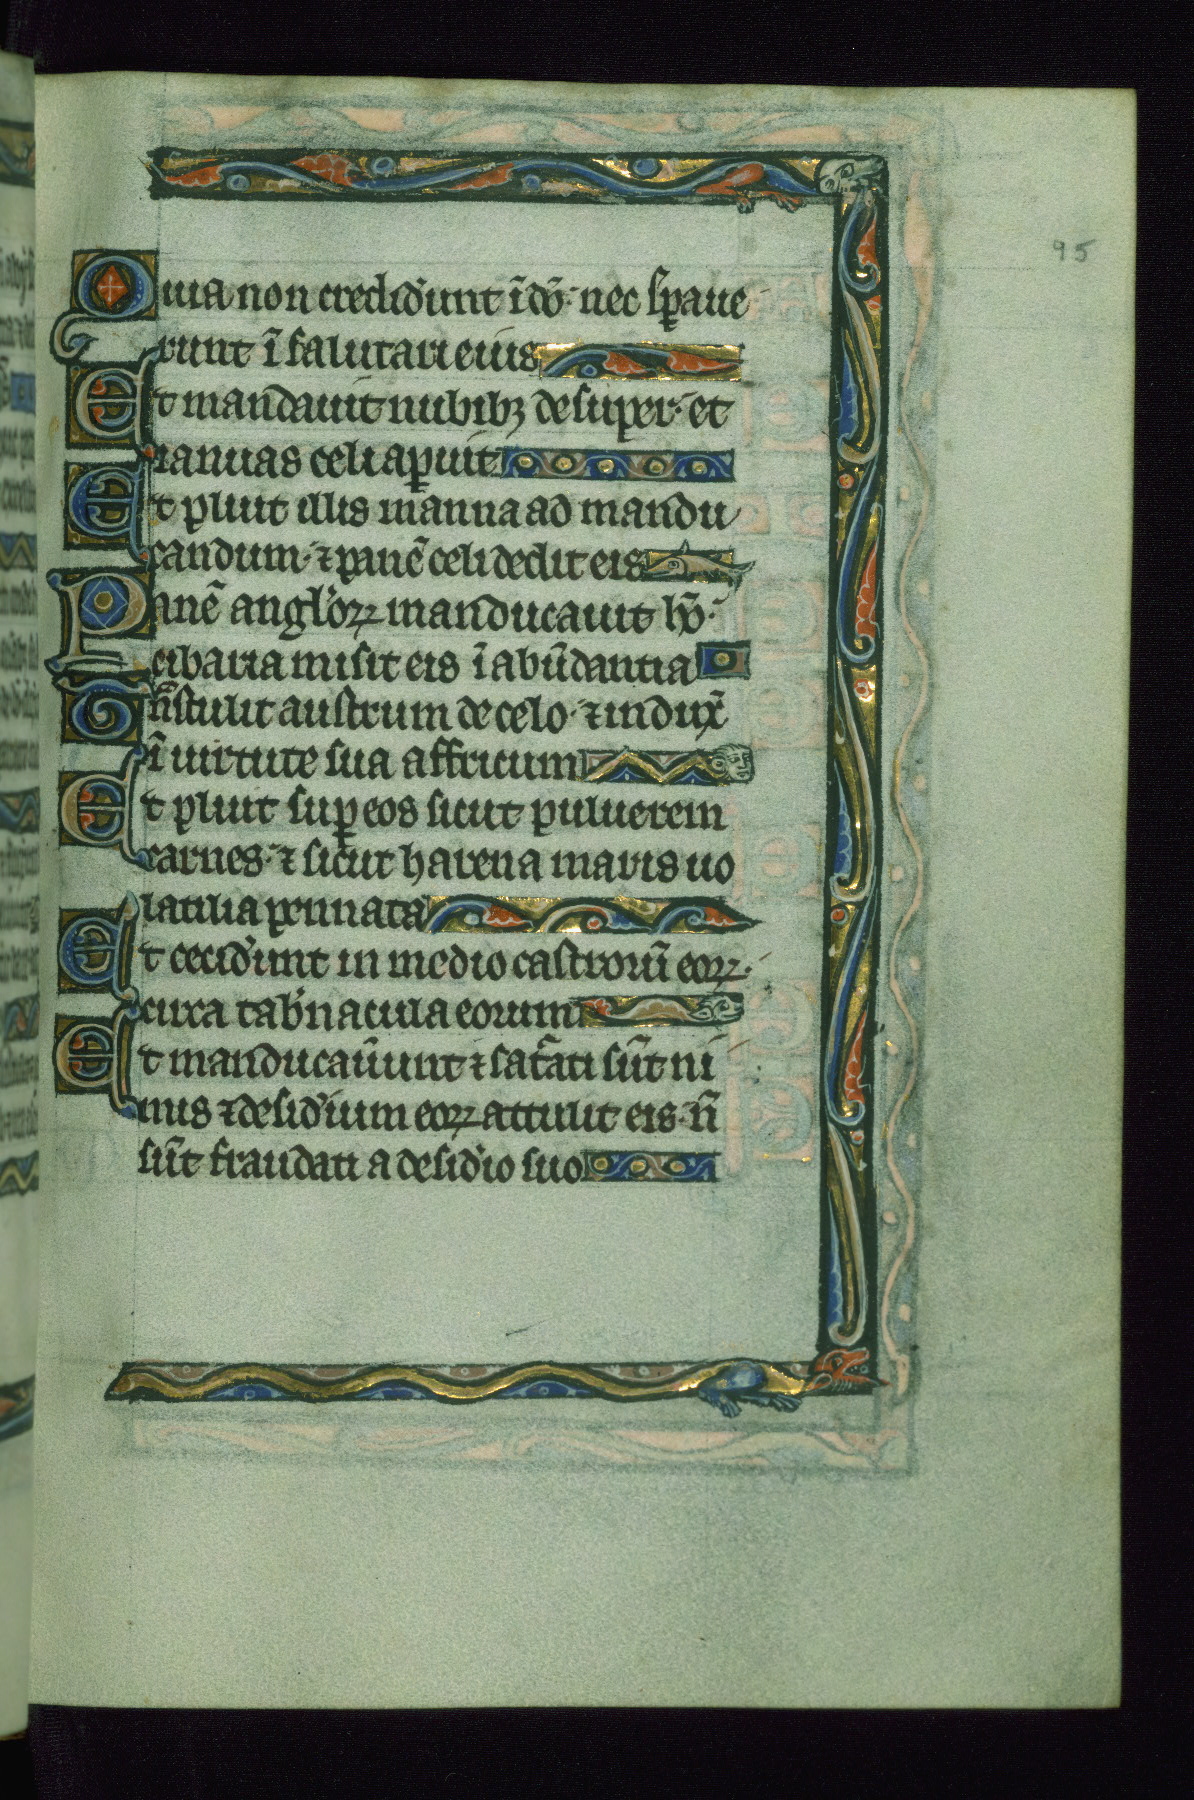 95
Quia non credid'unt ī dō· nec sꝑaue
runt ī salutari eius
Et mandauit nubibꝫ desuper· et
ianuas celi aꝑuit
Et pluit illis manna ad mandu
candum· ⁊ panē celi dedit eis
Panē angl'oꝝ manducauit hō·
cibaria misit eis ī abūdantia
Tᵃnstulit austrum de celo· ⁊ indux̄
ī uirtute sua affricum
Et pluit suꝑ eos sicut puluerem
carnes· ⁊ sicut harena maris uo
latilia pennata
Et cecid'unt in medio castrorū eoꝝ·
circa tab'nacula eorum
Et manducau'unt ⁊ satᵃati sūt ni
mis ⁊ desid'ium eoꝝ attulit eis· ñ
sūt fraudati a desid'io suo